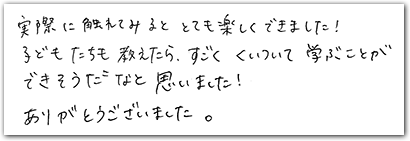 実際に触れてみるととても楽しくできました！
子どもたちも教えたら、すごくくいついて学ぶことが
できそうだなと思いました！
ありがとうございました。